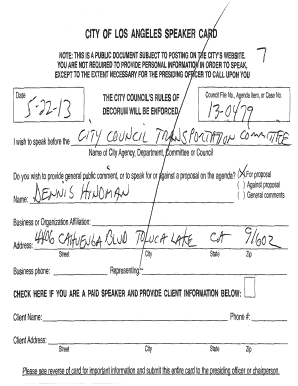 CITY OF LOS ANGELES SPEAKER CARD
NOTE: THIS IS A PUBLIC DOCUMENT SUBJECT TO POSTING ON THE CITY'S WEBSITE.
YOU ARE NOT REQUIRED TO PROVIDE PERSONAL INFORMATION IN ORDER TO SPEAK,
EXCEPT TO THE EXTENT NECESSARY FOR THE PRESIDING OFFICER TO CALL UPON YOU
7
Date
5-22-13
THE CITY COUNCIL'S RULES OF
DECORUM WILL BE ENFORCED
Council File No., Agenda Item, or Case No.
13-0479
I wish to speak before the CITY COUNCIL TRANSPORTATION COMMITTEE
Name of City Agency, Department, Committee or Council
Do you wish to provide general public comment, or to speak for or against a proposal on the agenda? (X) For proposal
( ) Against proposal
( ) General comments
Name: DENNIS HINDMAN
Business or Organization Affiliation:
Address: 4406 CAHUENGA BLVD TOLUCA LAKE CA 91602
Street City State Zip
Business phone: Representing:
CHECK HERE IF YOU ARE A PAID SPEAKER AND PROVIDE CLIENT INFORMATION BELOW:
Client Name: Phone #:
Client Address:
Street City State Zip
Please see reverse of card for important information and submit this entire card to the presiding officer or chairperson.